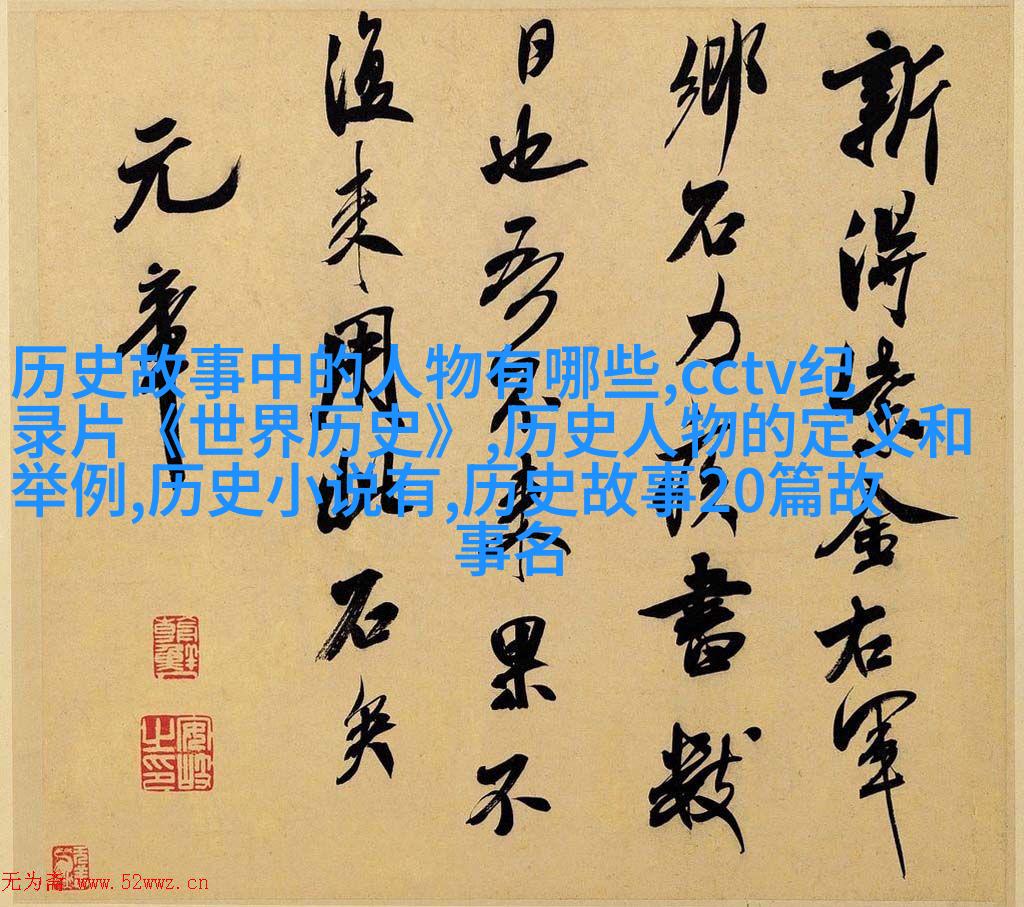 新得紫金右軍
鄉石力疾書數
日也吾不来果不
復来用此石矣
元章
历史故事中的人物有哪些,cctv纪
录片《世界历史》,历史人物的定义和
举例,历史小说有,历史故事20篇故
事名
安岐之印
无为斋 www.52wwz.cn